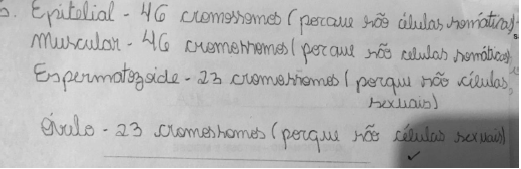 5. Epitelial - 46 cromossomos (porque são células somáticas)
Muscular - 46 cromossomos (porque são celulas somáticas)
Espermatozoide - 23 cromossomos (porque são células
sexuais)
óvulo - 23 cromossomos (porque são células sexuais)